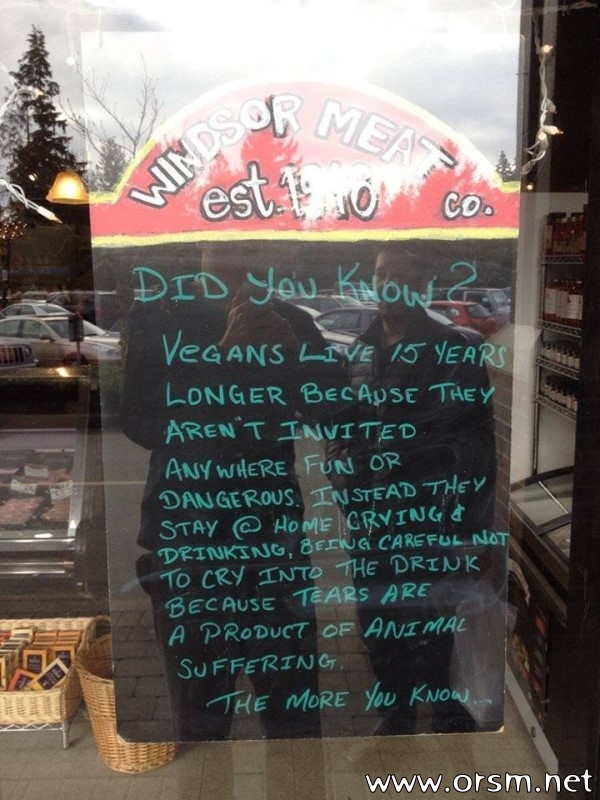 WINDSOR MEAT
est. 1910 co.
DID YOU KNOW?
VEGANS LIVE 15 YEARS
LONGER BECAUSE THEY
AREN'T INVITED
ANYWHERE FUN OR
DANGEROUS. INSTEAD THEY
STAY @ HOME CRYING &
DRINKING, BEING CAREFUL NOT
TO CRY INTO THE DRINK
BECAUSE TEARS ARE
A PRODUCT OF ANIMAL
SUFFERING.
THE MORE YOU KNOW...
www.orsm.net